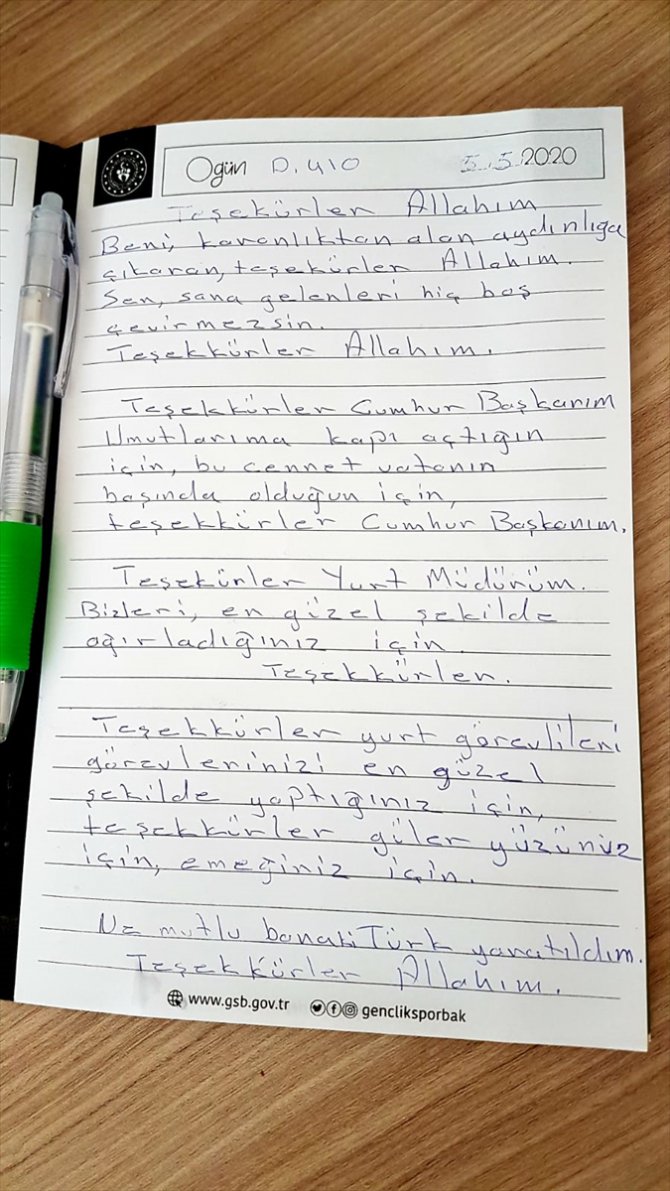 Ogün D.410 5.5.2020
Teşekürler Allahım
Beni, karanlıktan alan aydınlığa
çıkaran, teşekürler Allahım.
Sen, sana gelenleri hiç boş
çevirmezsin.
Teşekkürler Allahım.
Teşekkürler Cumhur Başkanım
Umutlarıma kapı açtığın
için, bu cennet vatanın
başında olduğun için,
teşekkürler Cumhur Başkanım.
Teşekürler Yurt Müdürüm.
Bizleri, en güzel şekilde
ağırladığınız için.
Teşekkürler.
Teşekkürler yurt görevlileri
görevlerinizi en güzel
şekilde yaptığınız için,
teşekkürler güler yüzünüz
için, emeğiniz için.
Ne mutlu banaki Türk yaratıldım.
Teşekkürler Allahım.
www.gsb.gov.tr gencliksporbak